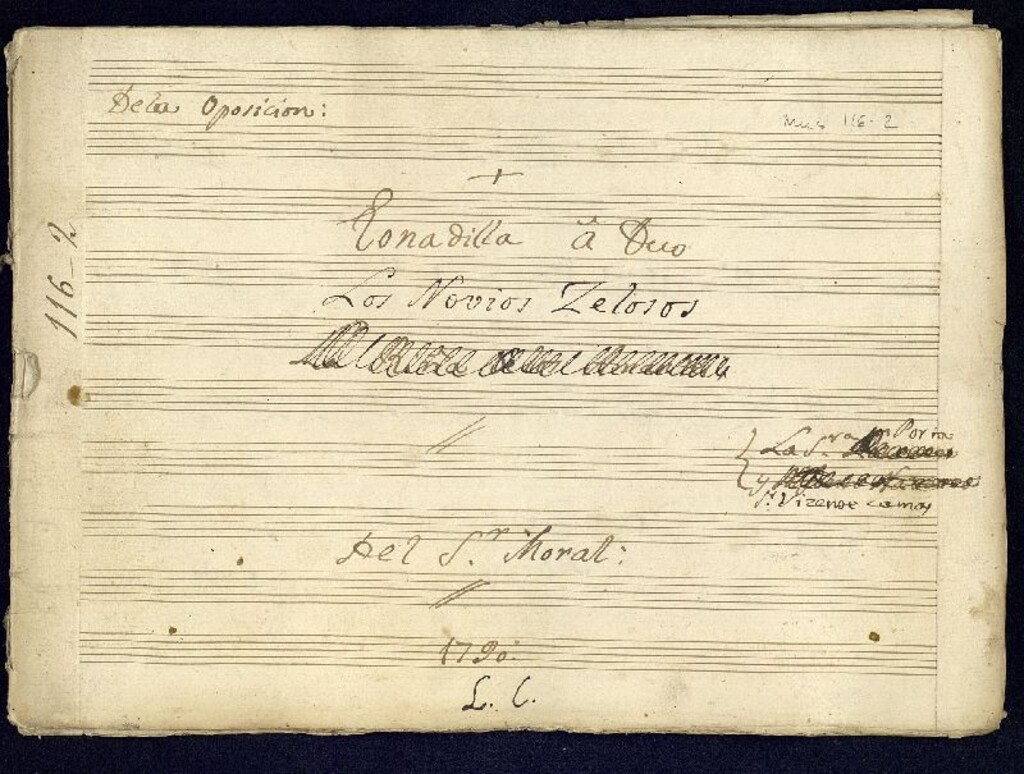 Dela Oposicion:
Mus 116-2
116-2
+
Tonadilla â Duo
Los Novios Zelosos
La S.ra
y
S.r Vizente camas
Del S.r Moral:
1790.
L. C.